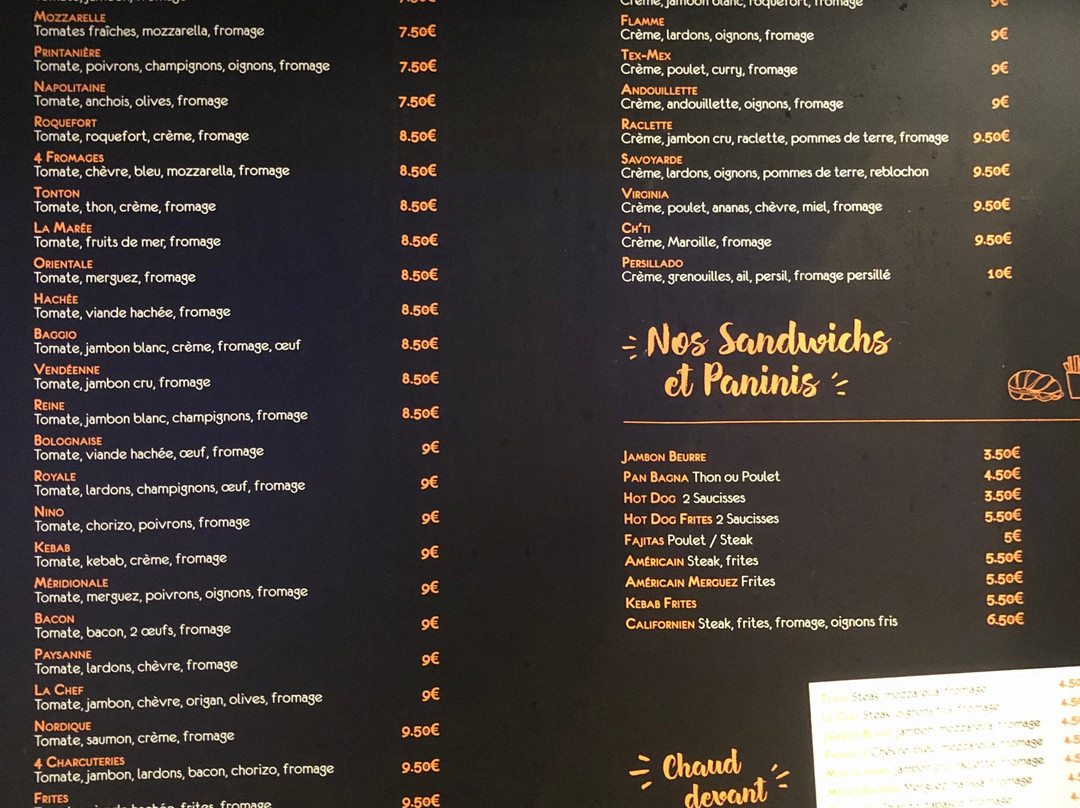 7.50€
MOZZARELLE
Tomates fraîches, mozzarella, fromage 7.50€
PRINTANIÈRE
Tomate, poivrons, champignons, oignons, fromage 7.50€
NAPOLITAINE
Tomate, anchois, olives, fromage 7.50€
ROQUEFORT
Tomate, roquefort, crème, fromage 8.50€
4 FROMAGES
Tomate, chèvre, bleu, mozzarella, fromage 8.50€
TONTON
Tomate, thon, crème, fromage 8.50€
LA MARÉE
Tomate, fruits de mer, fromage 8.50€
ORIENTALE
Tomate, merguez, fromage 8.50€
HACHÉE
Tomate, viande hachée, fromage 8.50€
BAGGIO
Tomate, jambon blanc, crème, fromage, œuf 8.50€
VENDÉENNE
Tomate, jambon cru, fromage 8.50€
REINE
Tomate, jambon blanc, champignons, fromage 8.50€
BOLOGNAISE
Tomate, viande hachée, œuf, fromage 9€
ROYALE
Tomate, lardons, champignons, œuf, fromage 9€
NINO
Tomate, chorizo, poivrons, fromage 9€
KEBAB
Tomate, kebab, crème, fromage 9€
MÉRIDIONALE
Tomate, merguez, poivrons, oignons, fromage 9€
BACON
Tomate, bacon, 2 œufs, fromage 9€
PAYSANNE
Tomate, lardons, chèvre, fromage 9€
LA CHEF
Tomate, jambon, chèvre, origan, olives, fromage 9€
NORDIQUE
Tomate, saumon, crème, fromage 9.50€
4 CHARCUTERIES
Tomate, jambon, lardons, bacon, chorizo, fromage 9.50€
FRITES
hachée, frites, fromage 9.50€
Crème, jambon blanc, roquefort, fromage 9€
FLAMME
Crème, lardons, oignons, fromage 9€
TEX-MEX
Crème, poulet, curry, fromage 9€
ANDOUILLETTE
Crème, andouillette, oignons, fromage 9€
RACLETTE
Crème, jambon cru, raclette, pommes de terre, fromage 9.50€
SAVOYARDE
Crème, lardons, oignons, pommes de terre, reblochon 9.50€
VIRGINIA
Crème, poulet, ananas, chèvre, miel, fromage 9.50€
CH'TI
Crème, Maroille, fromage 9.50€
PERSILLADO
Crème, grenouilles, ail, persil, fromage persillé 10€
Nos Sandwichs
et Paninis
JAMBON BEURRE 3.50€
PAN BAGNA Thon ou Poulet 4.50€
HOT DOG 2 Saucisses 3.50€
HOT DOG FRITES 2 Saucisses 5.50€
FAJITAS Poulet / Steak 5€
AMÉRICAIN Steak, frites 5.50€
AMÉRICAIN MERGUEZ Frites 5.50€
KEBAB FRITES 5.50€
CALIFORNIEN Steak, frites, fromage, oignons fris 6.50€
Chaud
devant
Steak mozzarella fromage 4.50
Steak oignons fris fromage 4.50
jambon mozzarella fromage 4.50
Chèvre bleu mozzarella fromage 4.50
jambon cru raclette fromage
fromage